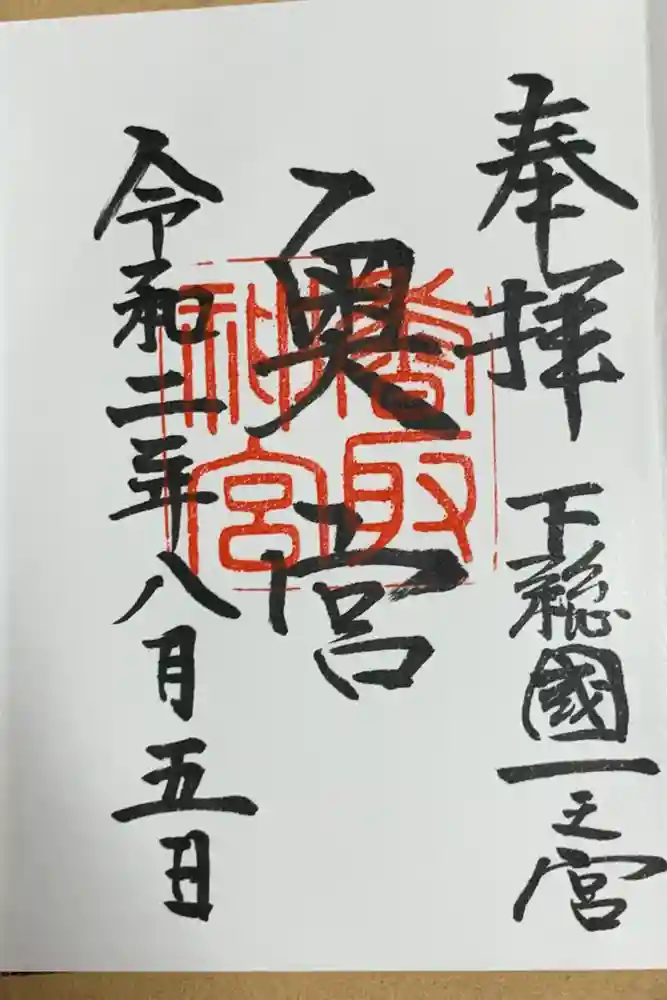 奉拝 下総國一之宮
奥宮
香取
神宮
令和二年八月五日